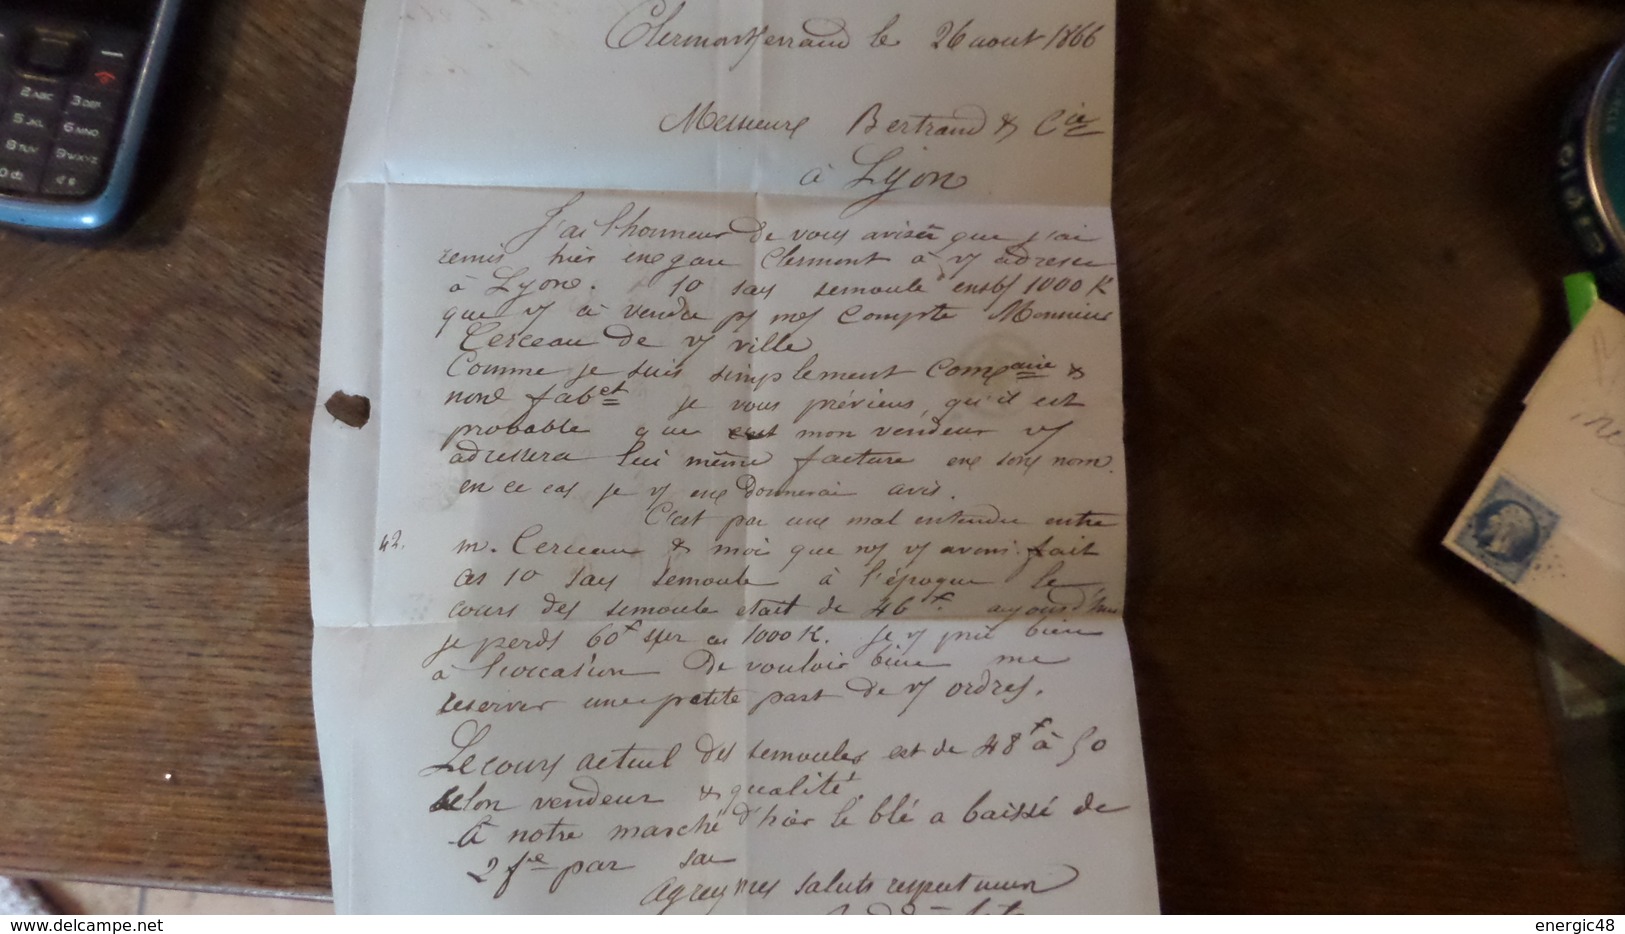 Clermontferrand le 26 aout 1866
Messieurs Bertrand & Cie
à Lyon
J'ai l'honneur de vous aviser que j'ai
remis hier en gare Clermont à v/ adresse
à Lyon. 10 sacs semoule ens/ 1000 K
que v/ à vendu p/ mes compte Monsieur
Cerceau de v/ ville
Comme je suis simplement Comre &
non fabct je vous préviens, qu'il est
probable que mon vendeur v/
adressera lui même facture en son nom.
en ce cas je v/ en donnerai avis.
C'est par une mal entendu entre
42. m. Cerceau & moi que n/ v/ avons fait
ces 10 sacs semoule à l'époque le
cours des semoule etait de 46f. aujourd'hui
je perds 60f sur ces 1000 K. Je v/ prie bien
à l'occasion de vouloir bien me
reserver une petite part de v/ ordres.
Le cours actuel des semoules est de 48f à 50
selon vendeur & qualité.
A notre marché d'hier le blé a baissé de
2 f par sac
Agreez mes saluts respectueux
2ABC
3DEF
5JKL
6MNO
8TUV
9WXYZ
delcampe.net
energic48